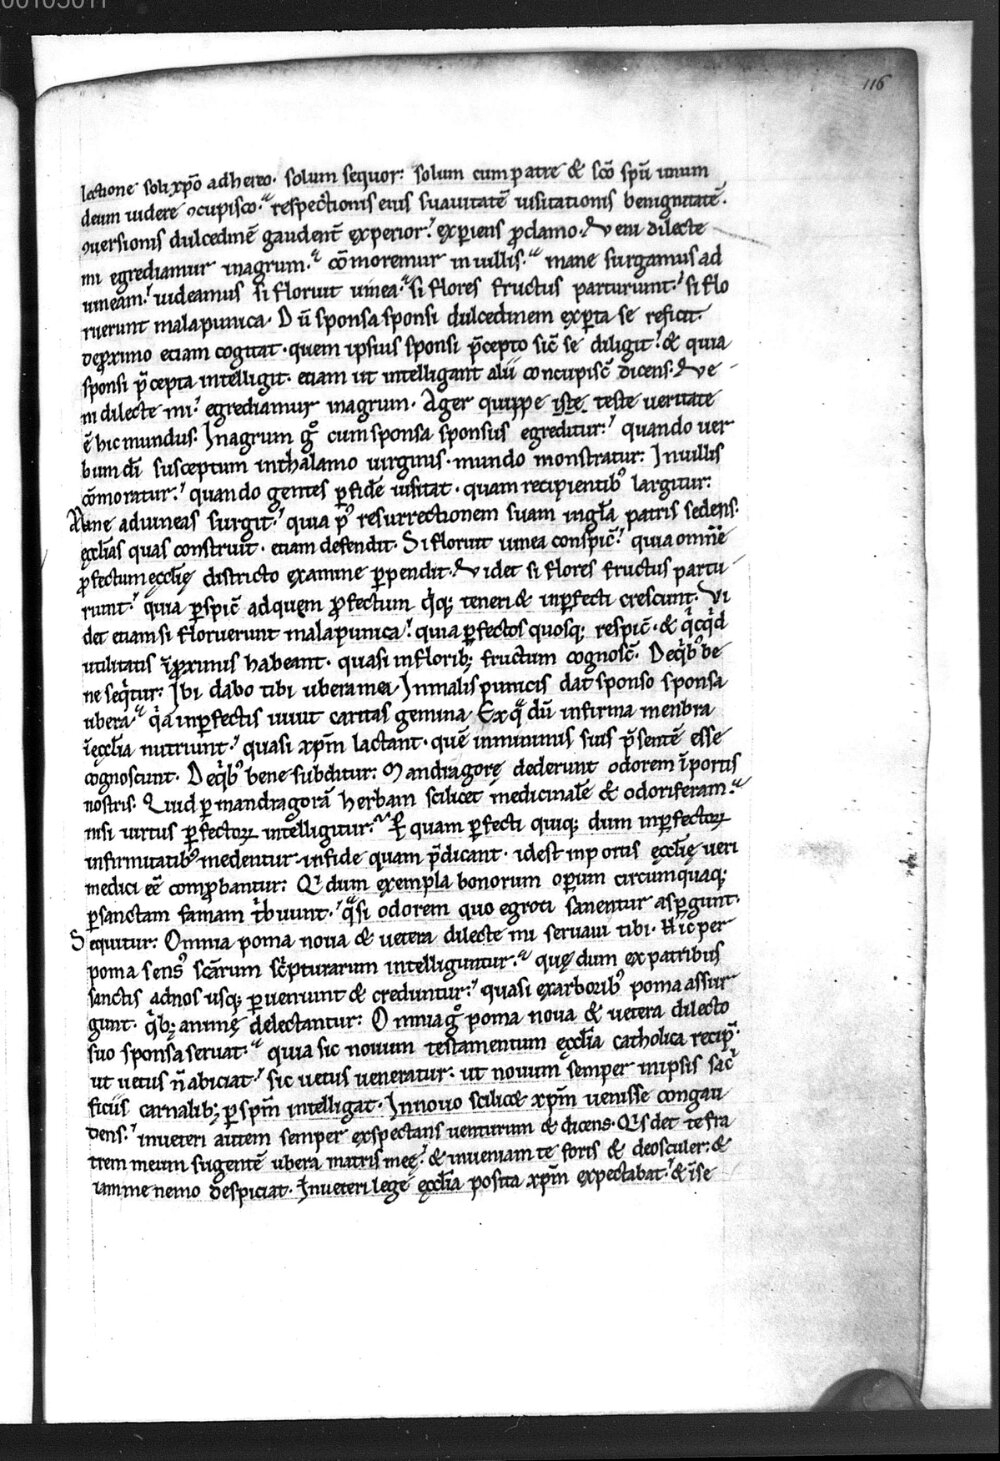 00105011
116
lactione soli xp̄o adhereo. solum sequor: solum cum patre & sc̄o sp̄u unum
deum uidere ꝯcupisco. respectionis eius suauitatē uisitationis benignitatē.
ꝯuersionis dulcedinē gaudent experior. expiens ꝓclamo. Veni dilecte
mi egrediamur inagrum. cōmoremur in uillis. mane surgamus ad
uineam. uideamus si floruit uinea. si flores fructus parturiunt. si flo
ruerunt mala punica. Dū sponsa sponsi dulcedinem exꝑta se reficit.
deꝓximo etiam cogitat. quem ipsius sponsi p̄cepto sic̄ se diligit. & quia
sponsi p̄cepta intelligit. etiam ut intelligant alii concupisc̄ dicens. Ve
ni dilecte mi. egrediamur inagrum. Ager quippe iste teste ueritate
ē hic mundus. Inagrum gͦ cum sponsa sponsus egreditur. quando uer
bum dī susceptum inthalamo uirginis. mundo monstratur: Inuillis
cōmoratur. quando gentes ꝑ fidē uisitat. quam recipientibꝰ largitur:
Mane aduineas surgit. quia pꝰ resurrectionem suam ingl̄a patris sedens.
ęccl̄ias quas construit. etiam defendit. Si floruit uinea conspic̄. quia omnē
ꝓfectum ęccl̄ię districto examine ꝑpendit. Videt si flores fructus partu
riunt. quia ꝑspic̄ ad quem ꝓfectum qͥqꝫ teneri & inꝑfecti crescunt. Vi
det etiam si floruerunt mala punica. quia ꝑfectos quosqꝫ respic̄. & qͥcqͥd
utilitatis īꝓximis habeant. quasi infloribꝫ fructum cognosc̄. Deqͥbꝰ be
ne seqͥtur: Ibi dabo tibi ubera mea. Inmalis punicis dat sponso sponsa
ubera. qͥa inꝑfectis uiuit caritas gemina. Ex qͣ dū infirma menbra
īęccl̄ia nutriunt. quasi xp̄m lactant. quē inminimis suis p̄sentē esse
cognoscunt. Deqͥbꝰ bene subditur: Mandragorę dederunt odorem īportis
nostris. Quid ꝑ mandragorā herbam scilicet medicinalē & odoriferam.
nisi uirtus ꝑfectoꝝ intelligitur. Ꝑ quam ꝑfecti quiqꝫ dum inꝑfectoꝝ
infirmitatibꝰ medentur. infide quam p̄dicant. idest inportis ęccl̄ię ueri
medici eē comꝓbantur: Qͥ dum exempla bonorum oꝑum circumquaqꝫ
ꝑ sanctam famam tͥbuunt. qͣsi odorem quo egroti sanentur asꝑgunt.
Sequitur: Omnia poma noua & uetera dilecte mi seruaui tibi. Hic per
poma sensꝰ sc̄arum scͥpturarum intelliguntur. quę dum ex patribus
sanctis adnos usqꝫ ꝑueniunt & creduntur. quasi exarboribꝰ poma assur
gunt. qͥbꝫ animę delectantur: Omnia gͦ poma noua & uetera dilecto
suo sponsa seruat. quia sic nouum testamentum ęccl̄ia catholica recip̄.
ut uetus n̄ abiciat. sic uetus ueneratur: ut nouum semper inipsis sacͥ
ficiis carnalibꝫ ꝑ sp̄m intelligat. Innouo scilicet xp̄m uenisse congau
dens. inueteri autem semper exspectans uenturum & dicens. Qͥs det te fra
trem meum sugentē ubera matris meę. & inueniam te foris & deosculer: &
iam me nemo despiciat. Inueteri lege ęccl̄ia posita xp̄m expectabat. & īse